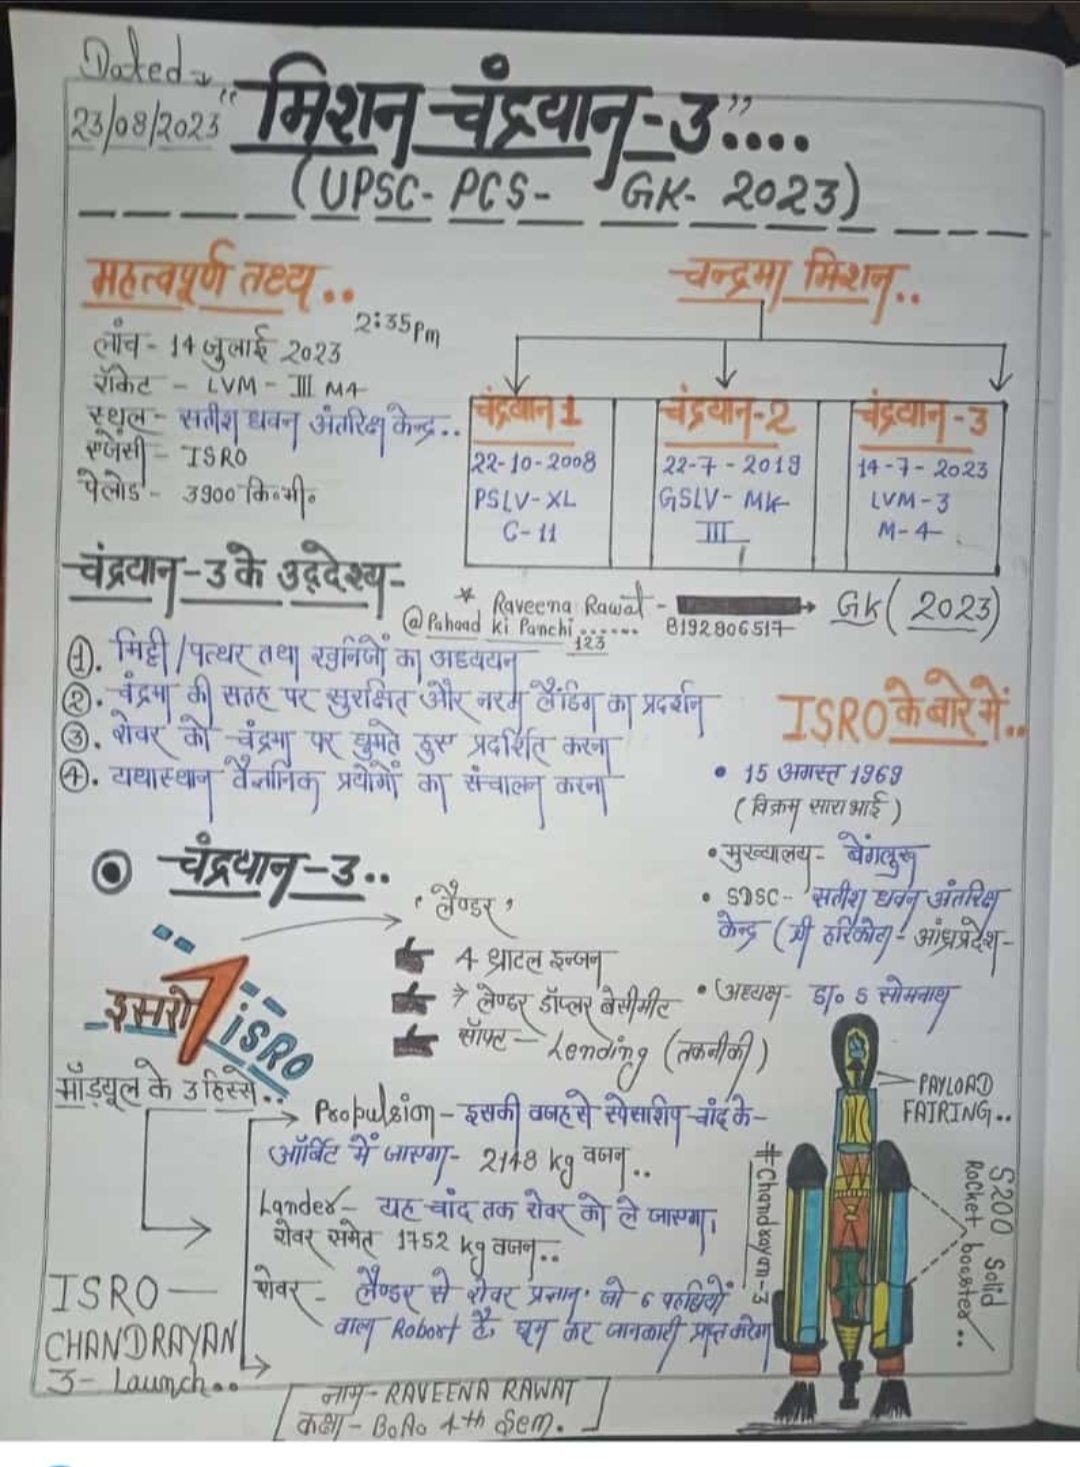 Dated →
23/08/2023
"मिशन चंद्रयान-3"....
(UPSC- PCS- GK- 2023)
महत्वपूर्ण तथ्य..
लांच - 14 जुलाई 2023 2:35pm
रॉकेट - LVM - III M4
स्थल - सतीश धवन अंतरिक्ष केन्द्र..
एजेंसी - ISRO
पेलोड - 3900 कि॰ग्री॰
चन्द्रमा मिशन..
चंद्रयान 1
22-10-2008
PSLV-XL
C-11
चंद्रयान-2
22-7-2019
GSLV- MK
III
चंद्रयान -3
14-7-2023
LVM-3
M-4
चंद्रयान-3 के उद्देश्य-
* Raveena Rawat - → GK( 2023)
@Pahaad ki Panchi...... 8192806517
123
①. मिट्टी/पत्थर तथा खनिजों का अध्ययन
②. चंद्रमा की सतह पर सुरक्षित और नरम लैंडिंग का प्रदर्शन
③. रोवर को चंद्रमा पर घुमते हुए प्रदर्शित करना
④. यथास्थान वैज्ञानिक प्रयोगों का संचालन करना
ISRO के बारे में..
• 15 अगस्त 1969
(विक्रम साराभाई)
• मुख्यालय- बेंगलुरु
• SDSC- सतीश धवन अंतरिक्ष
केन्द्र (श्री हरिकोटा)- आंध्रप्रदेश-
• अध्यक्ष- डा॰ S सोमनाथ
चंद्रयान-3..
'लैण्डर'
4 थ्राटल इन्जन
लेण्डर डॉप्लर
सॉफ्ट- Lending (तकनीकी)
इसरो isRO
मॉड्यूल के 3 हिस्से..
Propulsion - इसकी वजह से स्पेसशिप चांद के-
ऑर्बिट में जाएगा- 2148 kg वजन..
Lander- यह चांद तक रोवर को ले जाएगा,
रोवर समेत 1752 kg वजन..
रोवर - लैण्डर से रोवर प्रज्ञान' जो 6 पहियों
वाला Robort है, घूम कर जानकारी प्राप्त करेगा
ISRO -
CHANDRAYAN
3- Launch..
PAYLOAD
FAIRING..
S200 Solid
Rocket booster..
#Chandrayan-3
नाम- RAVEENA RAWAT
कक्षा- B.A. 4th Sem.